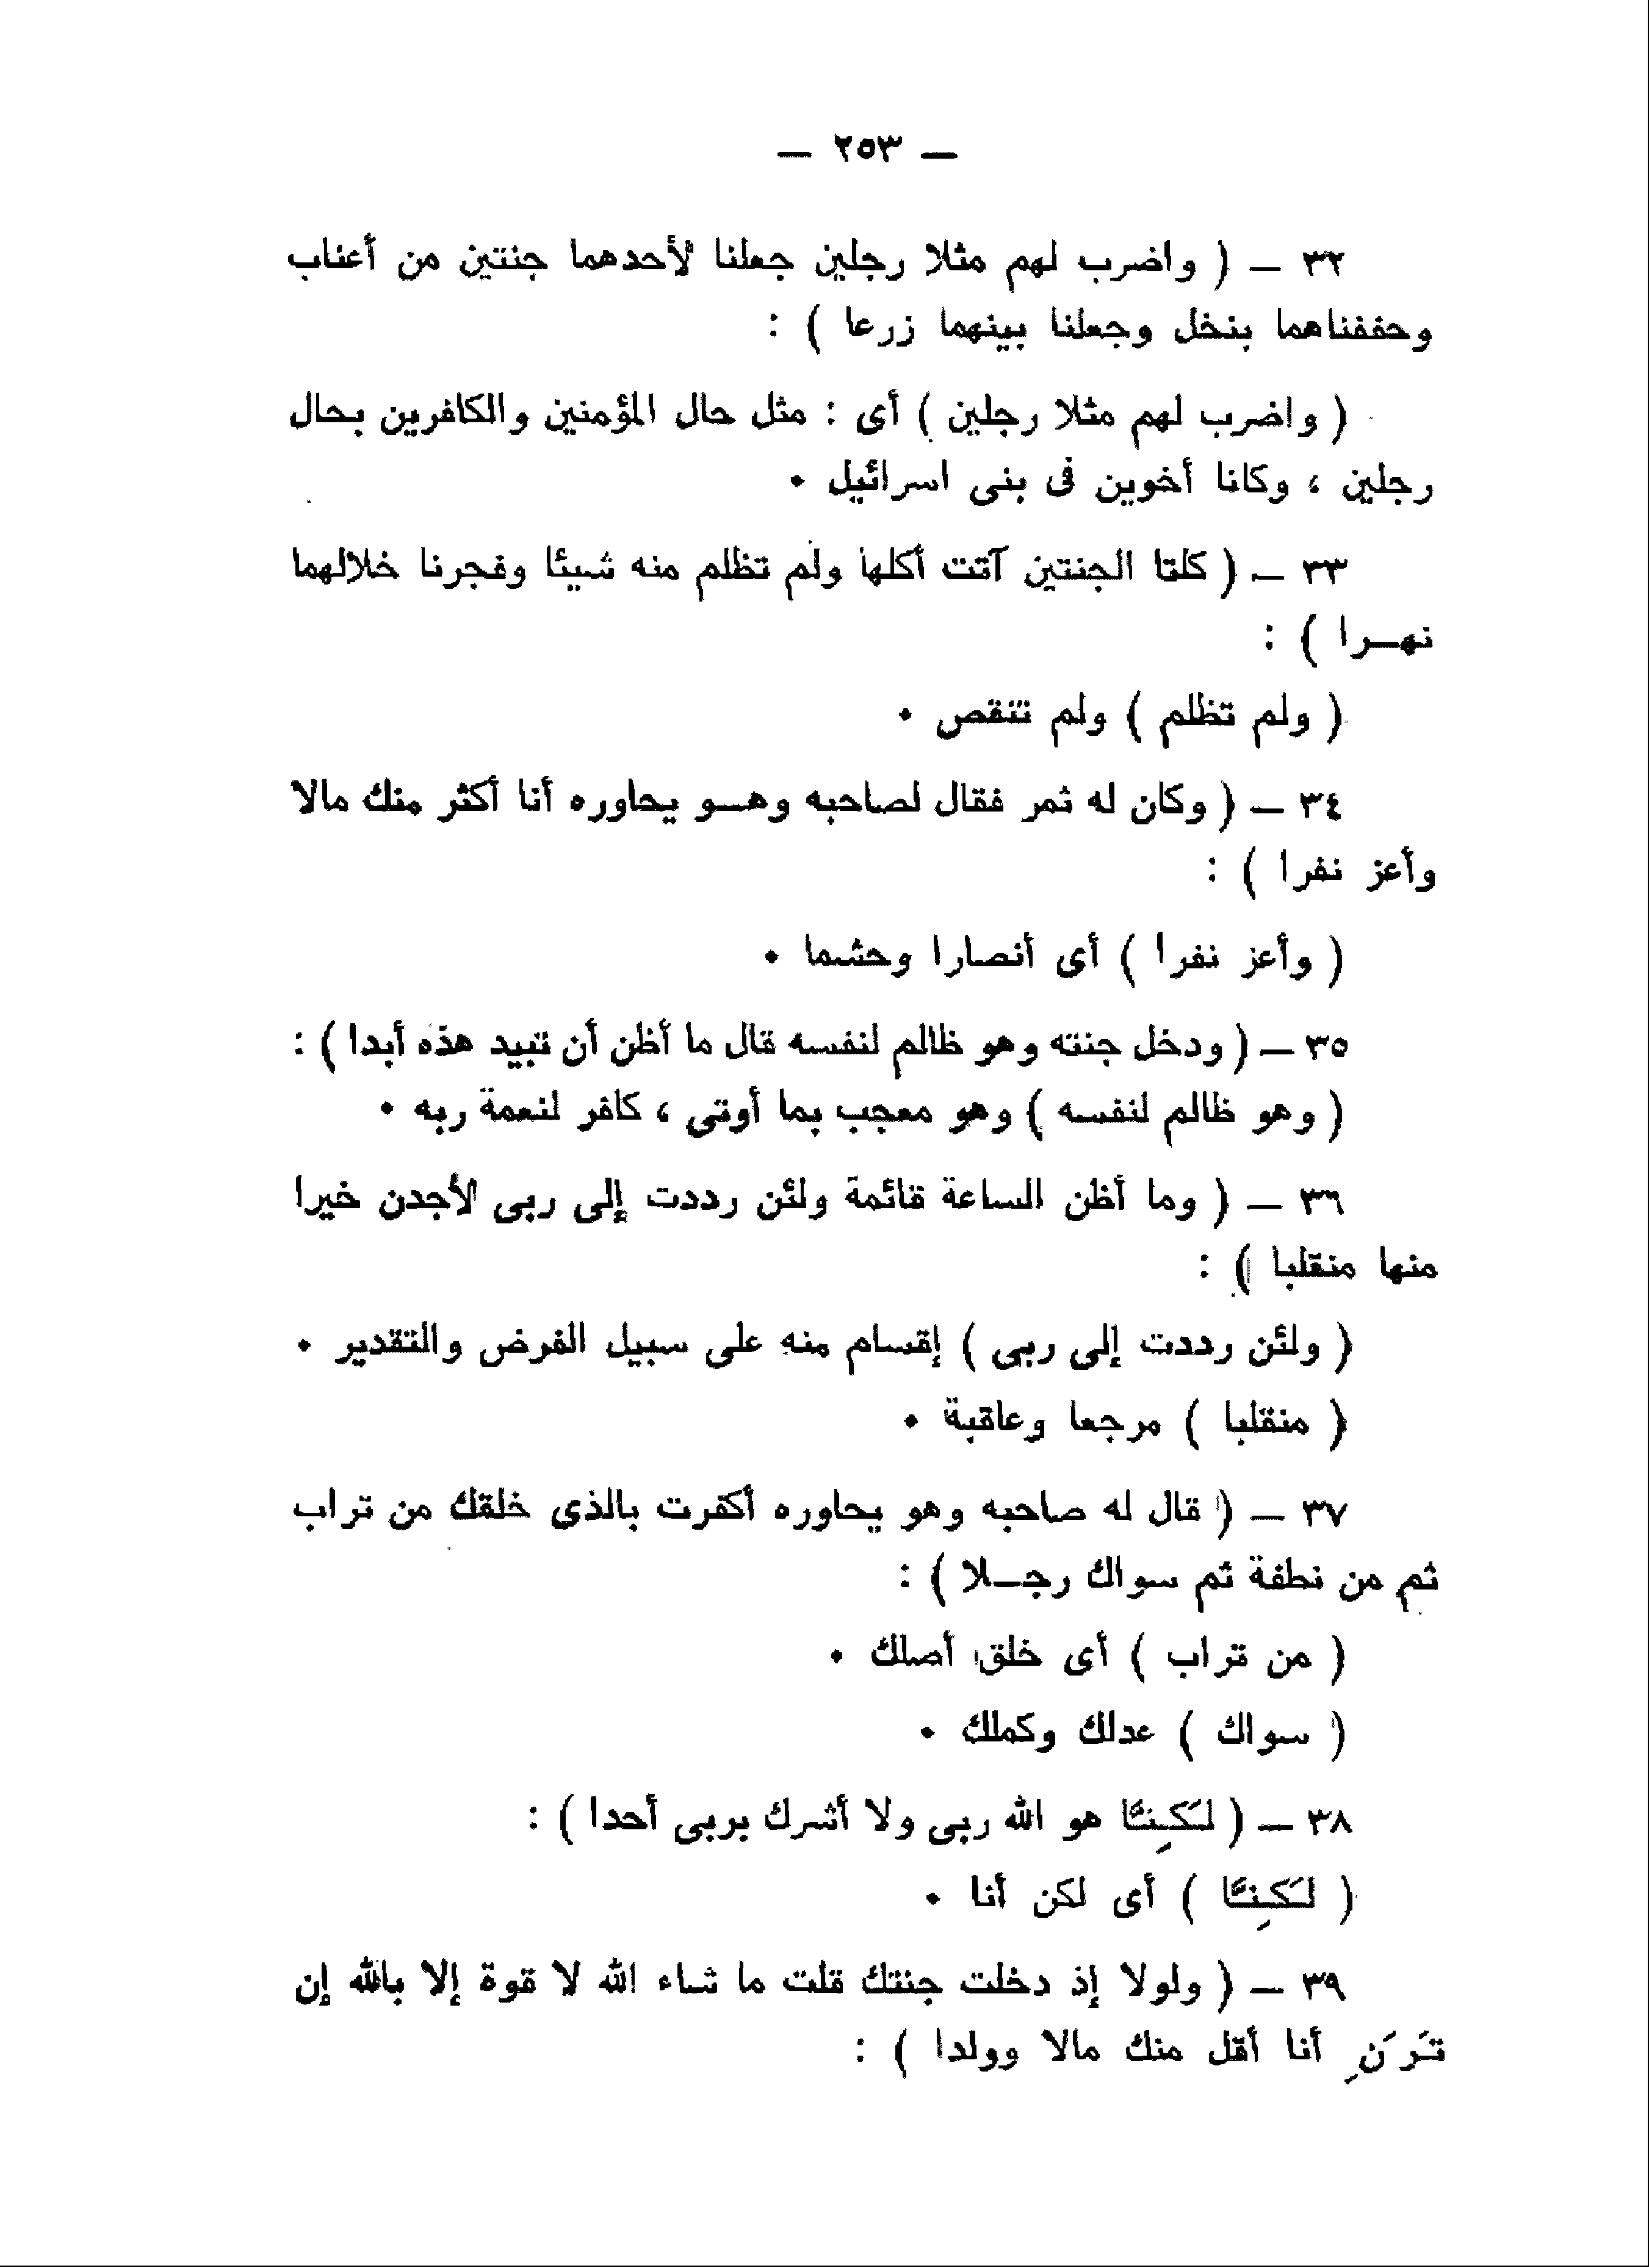 — ٢٥٣ —
٣٢ — ( واضرب لهم مثلا رجلين جعلنا لأحدهما جنتين من أعناب
وحففناهما بنخل وجعلنا بينهما زرعا ) :
( واضرب لهم مثلا رجلين ) أى : مثل حال المؤمنين والكافرين بحال
رجلين ، وكانا أخوين فى بنى اسرائيل •
٣٣ — ( كلتا الجنتين آتت أكلها ولم تظلم منه شيئا وفجرنا خلالهما
نهــرا ) :
( ولم تظلم ) ولم تنقص •
٣٤ — ( وكان له ثمر فقال لصاحبه وهـو يحاوره أنا أكثر منك مالا
وأعز نفرا ) :
( وأعز نفرا ) أى أنصارا وحشما •
٣٥ — ( ودخل جنته وهو ظالم لنفسه قال ما أظن أن تبيد هذه أبدا ) :
( وهو ظالم لنفسه ) وهو معجب بما أوتى ، كافر لنعمة ربه •
٣٦ — ( وما أظن الساعة قائمة ولئن رددت إلى ربى لأجدن خيرا
منها منقلبا ) :
( ولئن رددت إلى ربى ) إقسام منه على سبيل الفرض والتقدير •
( منقلبا ) مرجعا وعاقبة •
٣٧ — ( قال له صاحبه وهو يحاوره أكفرت بالذى خلقك من تراب
ثم من نطفة ثم سواك رجــلا ) :
( من تراب ) أى خلق أصلك •
( سواك ) عدلك وكملك •
٣٨ — ( لَكِنَّا هو الله ربى ولا أشرك بربى أحدا ) :
( لَكِنَّا ) أى لكن أنا •
٣٩ — ( ولولا إذ دخلت جنتك قلت ما شاء الله لا قوة إلا بالله إن
تَرَنِ أنا أقل منك مالا وولدا ) :